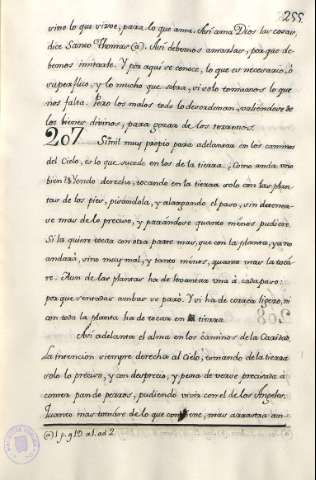 255.
vino lo que vive, para lo que ama. Así ama Dios las cosas,
dice Santo Thomas (a). Así debemos amarlas, porque de-
bemos imitarle. Y por aquí se conoce, lo que es necesario, ó
superfluo, y lo mucho que sobra, si solo tomamos lo que
nos falta. Pero los malos todo lo desordenan, valiéndose de
los bienes divinos, para gozar de los terrenos.
207 Simil muy propio para adelantar en los caminos
del Cielo, es lo que sucede en los de la tierra. ¿Como anda uno
bien? Yendo derecho, tocando en la tierra solo con las plan-
tas de los pies, pisandola, y alargando el paso, sin detener-
se mas de lo preciso, y parandose quanto menos pudiere.
Si la quiere tocar con otra parte mas, que con la planta, ya no
andará, sino muy mal, y tanto menos, quanto mas la toca-
re. Aun de las plantas ha de levantar una á cada paso:
porque sentadas ambas se paró. Y si ha de correr ligero, ni
con toda la planta ha de tocar en tierra.
Así adelanta el alma en los caminos de la Caridad.
La intencion siempre derecha al Cielo, tomando de la tierra
solo lo preciso, y con desprecio, y pena de verse precisada á
comer pan de perros, pudiendo vivir con el de los Angeles.
Quanto mas tomáre de lo que conviene, mas arrastra an-
(a) 1 p. q 20. a 1. ad 2.